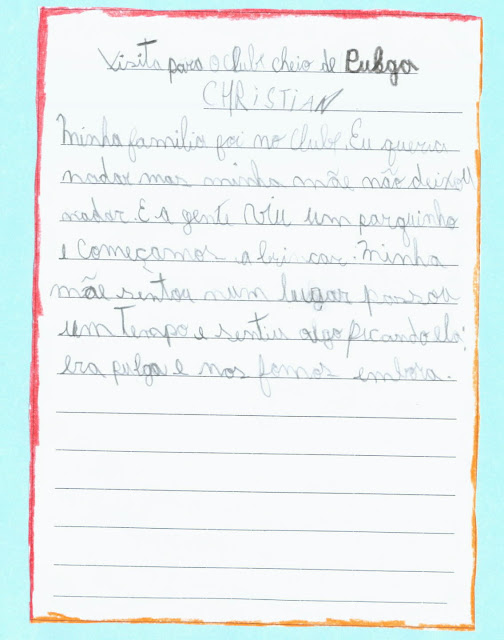 Visita para o clube cheio de Pulga
CHRISTIAN
Minha familia foi no clube. Eu queria
nadar mas minha mãe não deixou
nadar. E a gente viu um parquinho
e começamos a brincar. Minha
mãe sentou num lugar passou
um tempo e sentiu algo picando ela:
era pulga e nos fomos embora.